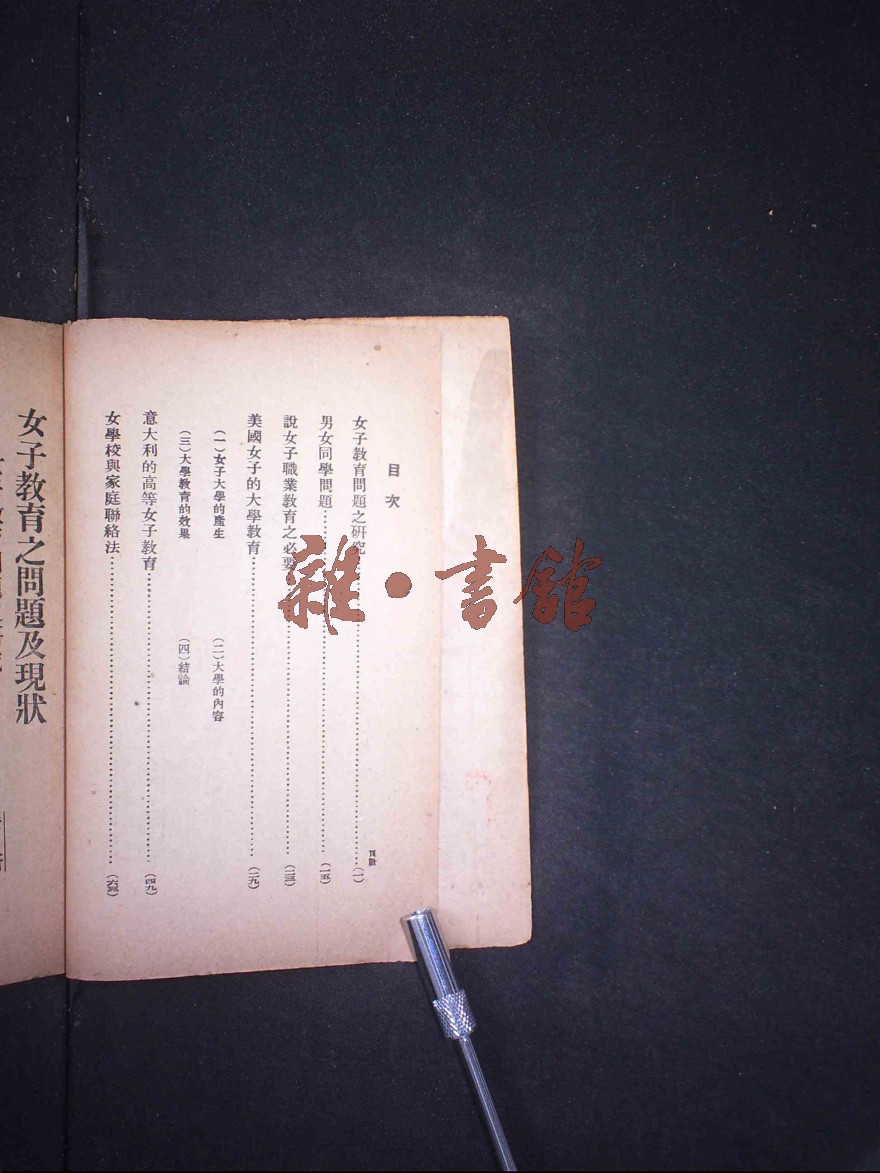 目次
頁數
女子教育問題之研究……(一)
男女同學問題……(一五)
說女子職業教育之必要……(二三)
美國女子的大學教育……(二九)
(一)女子大學的產生 (二)大學的內容
(三)大學教育的效果 (四)結論
意大利的高等女子教育……(四九)
女學校與家庭聯絡法……(六三)
女子教育之問題及現狀
雜·書館